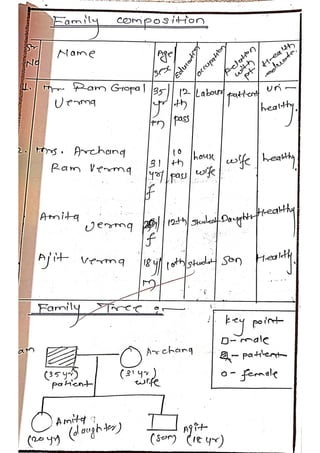 Family composition
Sr. No Name Age/sex Education occupation Relation with pt. Health
1. Mr. Ram Gopal Verma 35/yr m 12th pass Labour patient un-healthy.
2. Mrs. Archana Ram Verma 31 yr/f 10th pass house wife wife healthy
Amita Verma f 12th student Daughter Healthy
Ajit Verma 18 y/m 10th student son Healthy
Family Tree :-
Key point
□-male
-patient
o-female
am
Archana
(35yr) patient
(31yr) wife
Amita (daughter)
(20 yr)
Agit
(son) (18 yr)